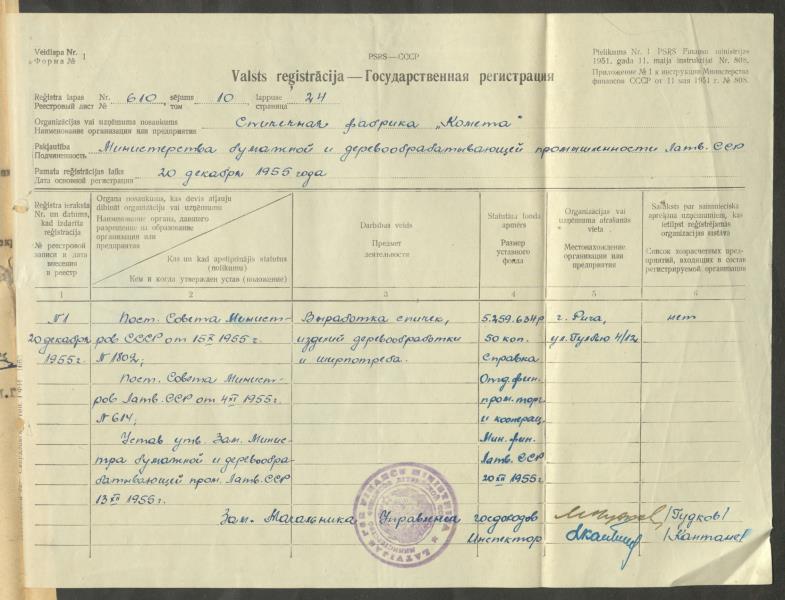 Veidlapa Nr. 1
Форма №
PSRS—СССР
Pielikums Nr. 1 PSRS Finansu ministrijas
1951. gada 11. maija instrukcijai Nr. 808.
Приложение № 1 к инструкции Министерства
финансов СССР от 11 мая 1951 г. № 808.
Valsts reģistrācija — Государственная регистрация
Reģistra lapas Nr. 610 sējums 10 lappuse 24
Реестровый лист № том страница
Organizācijas vai uzņēmuma nosaukums
Наименование организации или предприятия Спичечная фабрика „Комета"
Pakļautība
Подчиненность Министерства бумажной и деревообрабатывающей промышленности Латв. ССР
Pamata reģistrācijas laiks
Дата основной регистрации 20 декабря 1955 года
Reģistra ieraksta
Nr. un datums,
kad izdarīta
reģistrācija
№ реестровой
записи и дата
внесения
в реестр
Organa nosaukums, kas devis atļauju
dibināt organizāciju vai uzņēmumu
Наименование органа, давшего
разрешение на образование
организации или
предприятия
Kas un kad apstiprinājis statutus
(nolikumu)
Кем и когда утвержден устав (положение)
Darbības veids
Предмет
деятельности
Statutāra fonda
apmērs
Размер
уставного
фонда
Organizācijas vai
uzņēmuma atrašanās
vieta
Местонахождение
организации или
предприятия
Saraksts par saimnieciska
aprēķina uzņēmumiem, kas
ietilpst reģistrējamās
organizācijas sastāvā
Список хозрасчетных пред-
приятий, входящих в состав
регистрируемой организации
1 2 3 4 5 6
№1
20 декабря
1955 г.
Пост. Совета Минист-
ров СССР от 15 X 1955 г.
№ 1802;
Пост. Совета Минист-
ров Латв. ССР от 4 XI 1955 г.
№ 614;
Устав утв. Зам. Минис-
тра бумажной и деревообра-
батывающей пром. Латв. ССР
13 XII 1955 г.
Выработка спичек,
изделий деревообработки
и ширпотреба.
5.259.634 р
50 коп.
Справка
Отд. фин.
пром. торг
и кооперац.
Мин. фин.
Латв. ССР
20 XII 1955 г.
г. Рига,
ул. Тулбью 4/12
нет
LATVIJAS PSR FINANCU MINISTRIJA
Зам. Начальника Управления госдоходов /Гудков/
Инспектор